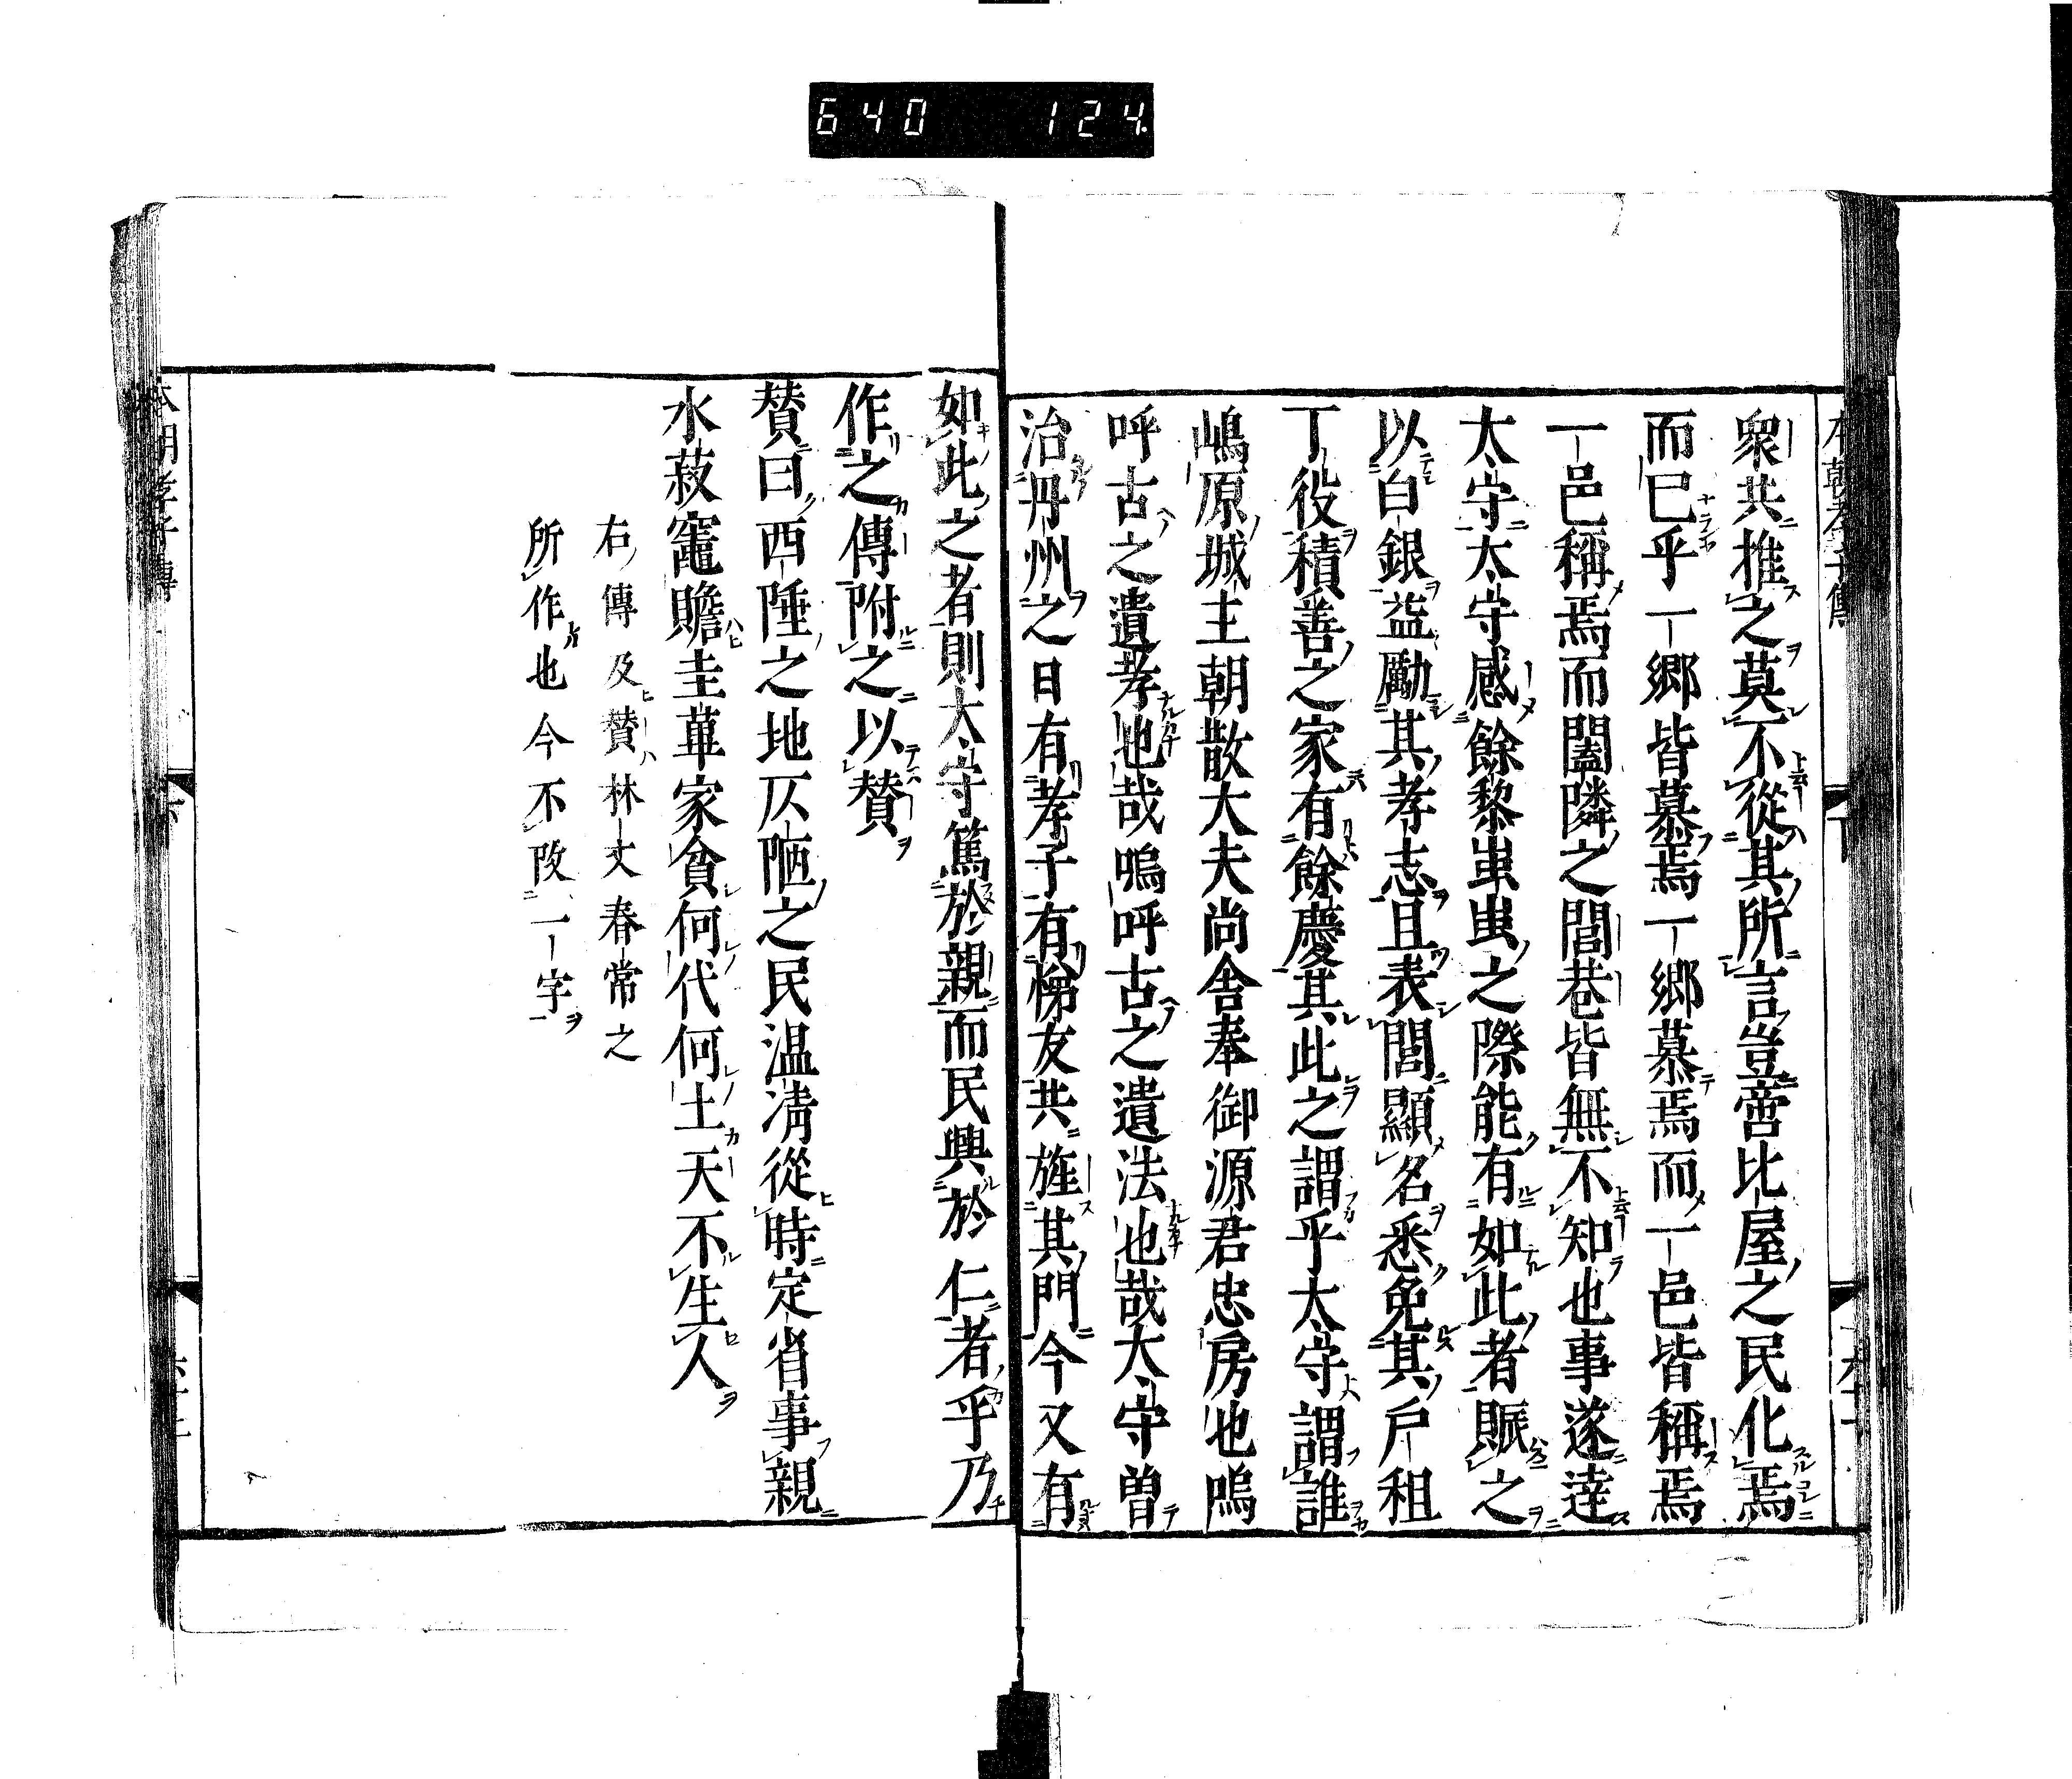 640 124
衆共推之莫不從其所言豈啻比屋之民化焉
而已乎一鄉皆慕焉一鄉慕焉而一邑皆稱焉
一邑稱焉而闔隣之閭巷皆無不知也事遂達
太守太守感餘黎蚩蚩之際能有如此者賑之
以白銀益勵其孝志且表閭顯名悉免其戶租
丁役積善之家有餘慶其此之謂乎太守謂誰
嶋原城主朝散大夫尚舍奉御源君忠房也嗚
呼古之遺孝也哉嗚呼古之遺法也哉太守曽
治丹州之日有孝子有悌友共旌其門今又有
如此之者則太守篤於親而民興於仁者乎乃
作之傳附之以賛
賛曰西陲之地仄陋之民温凊從時定省事親
水菽竈贍圭蓽家貧何代何土天不生人
右傳及賛林丈春常之
所作也今不改一字
本朝孝子傳